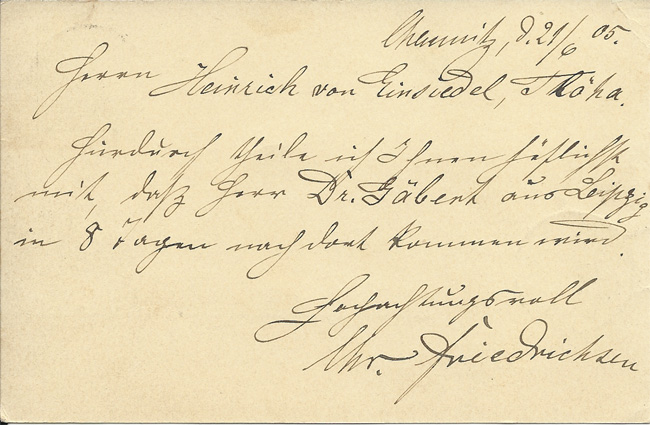 Chemnitz, d. 21/6 05.
Herrn Heinrich von Einsiedel, Flöha.
Hierdurch theile ich Ihnen höflichst
mit, daß Herr Dr. Gäbert aus Leipzig
in 8 Tagen nach dort kommen wird.
Hochachtungsvoll
Chr. Friedrichsen